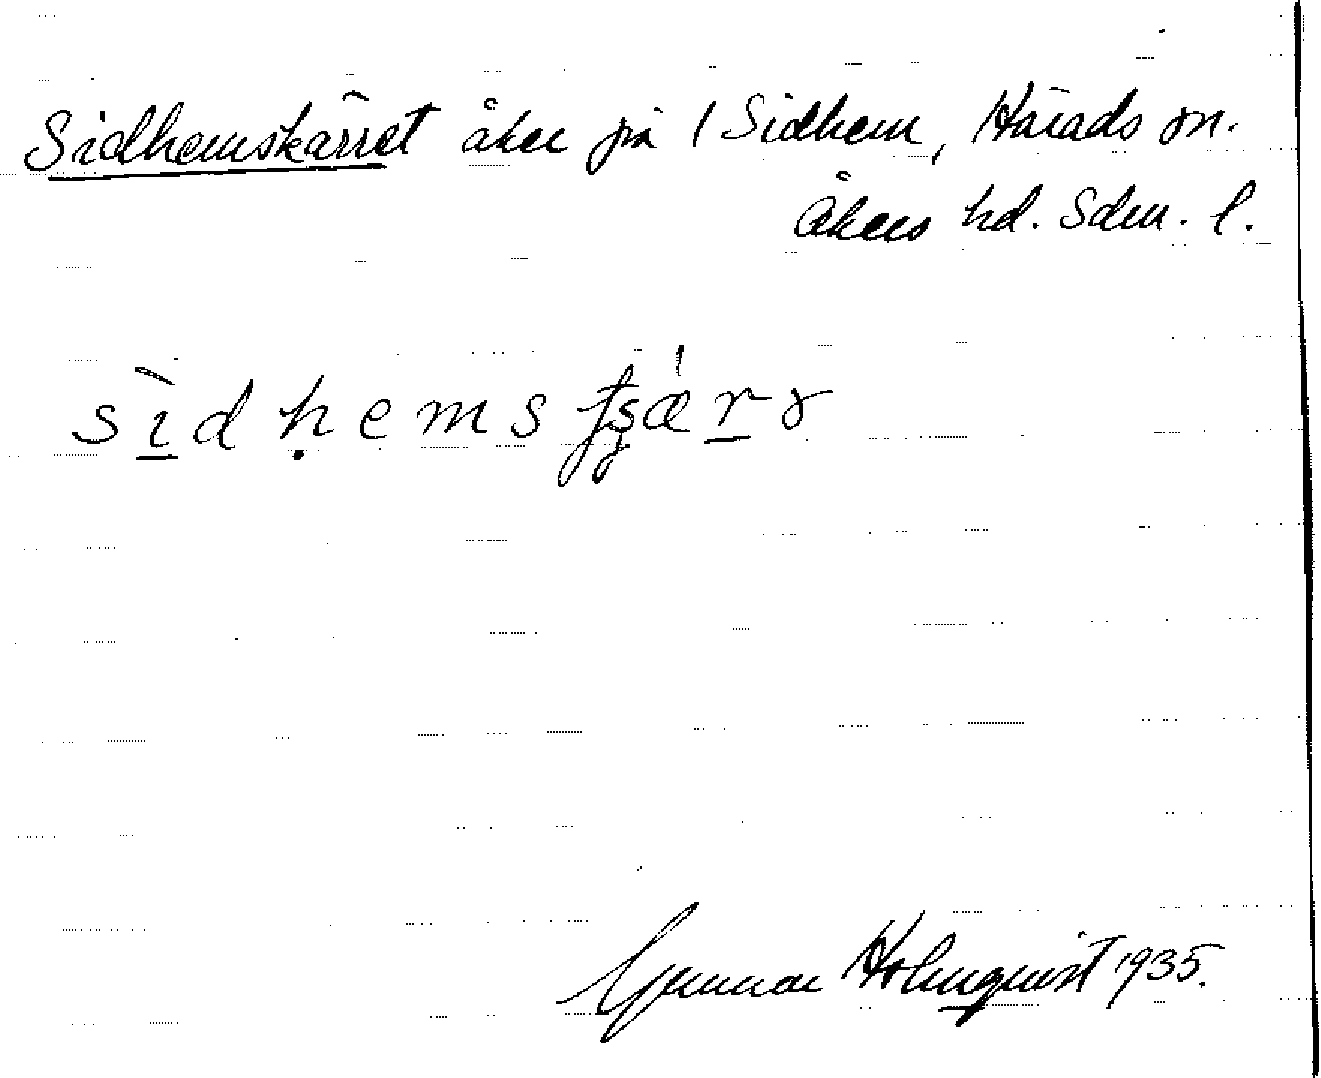 Sidhemskärret åker på 1 Sidhem, Härads sn.
Åkers hd. Sdm. l.
Gunnar Holmquist 1935.